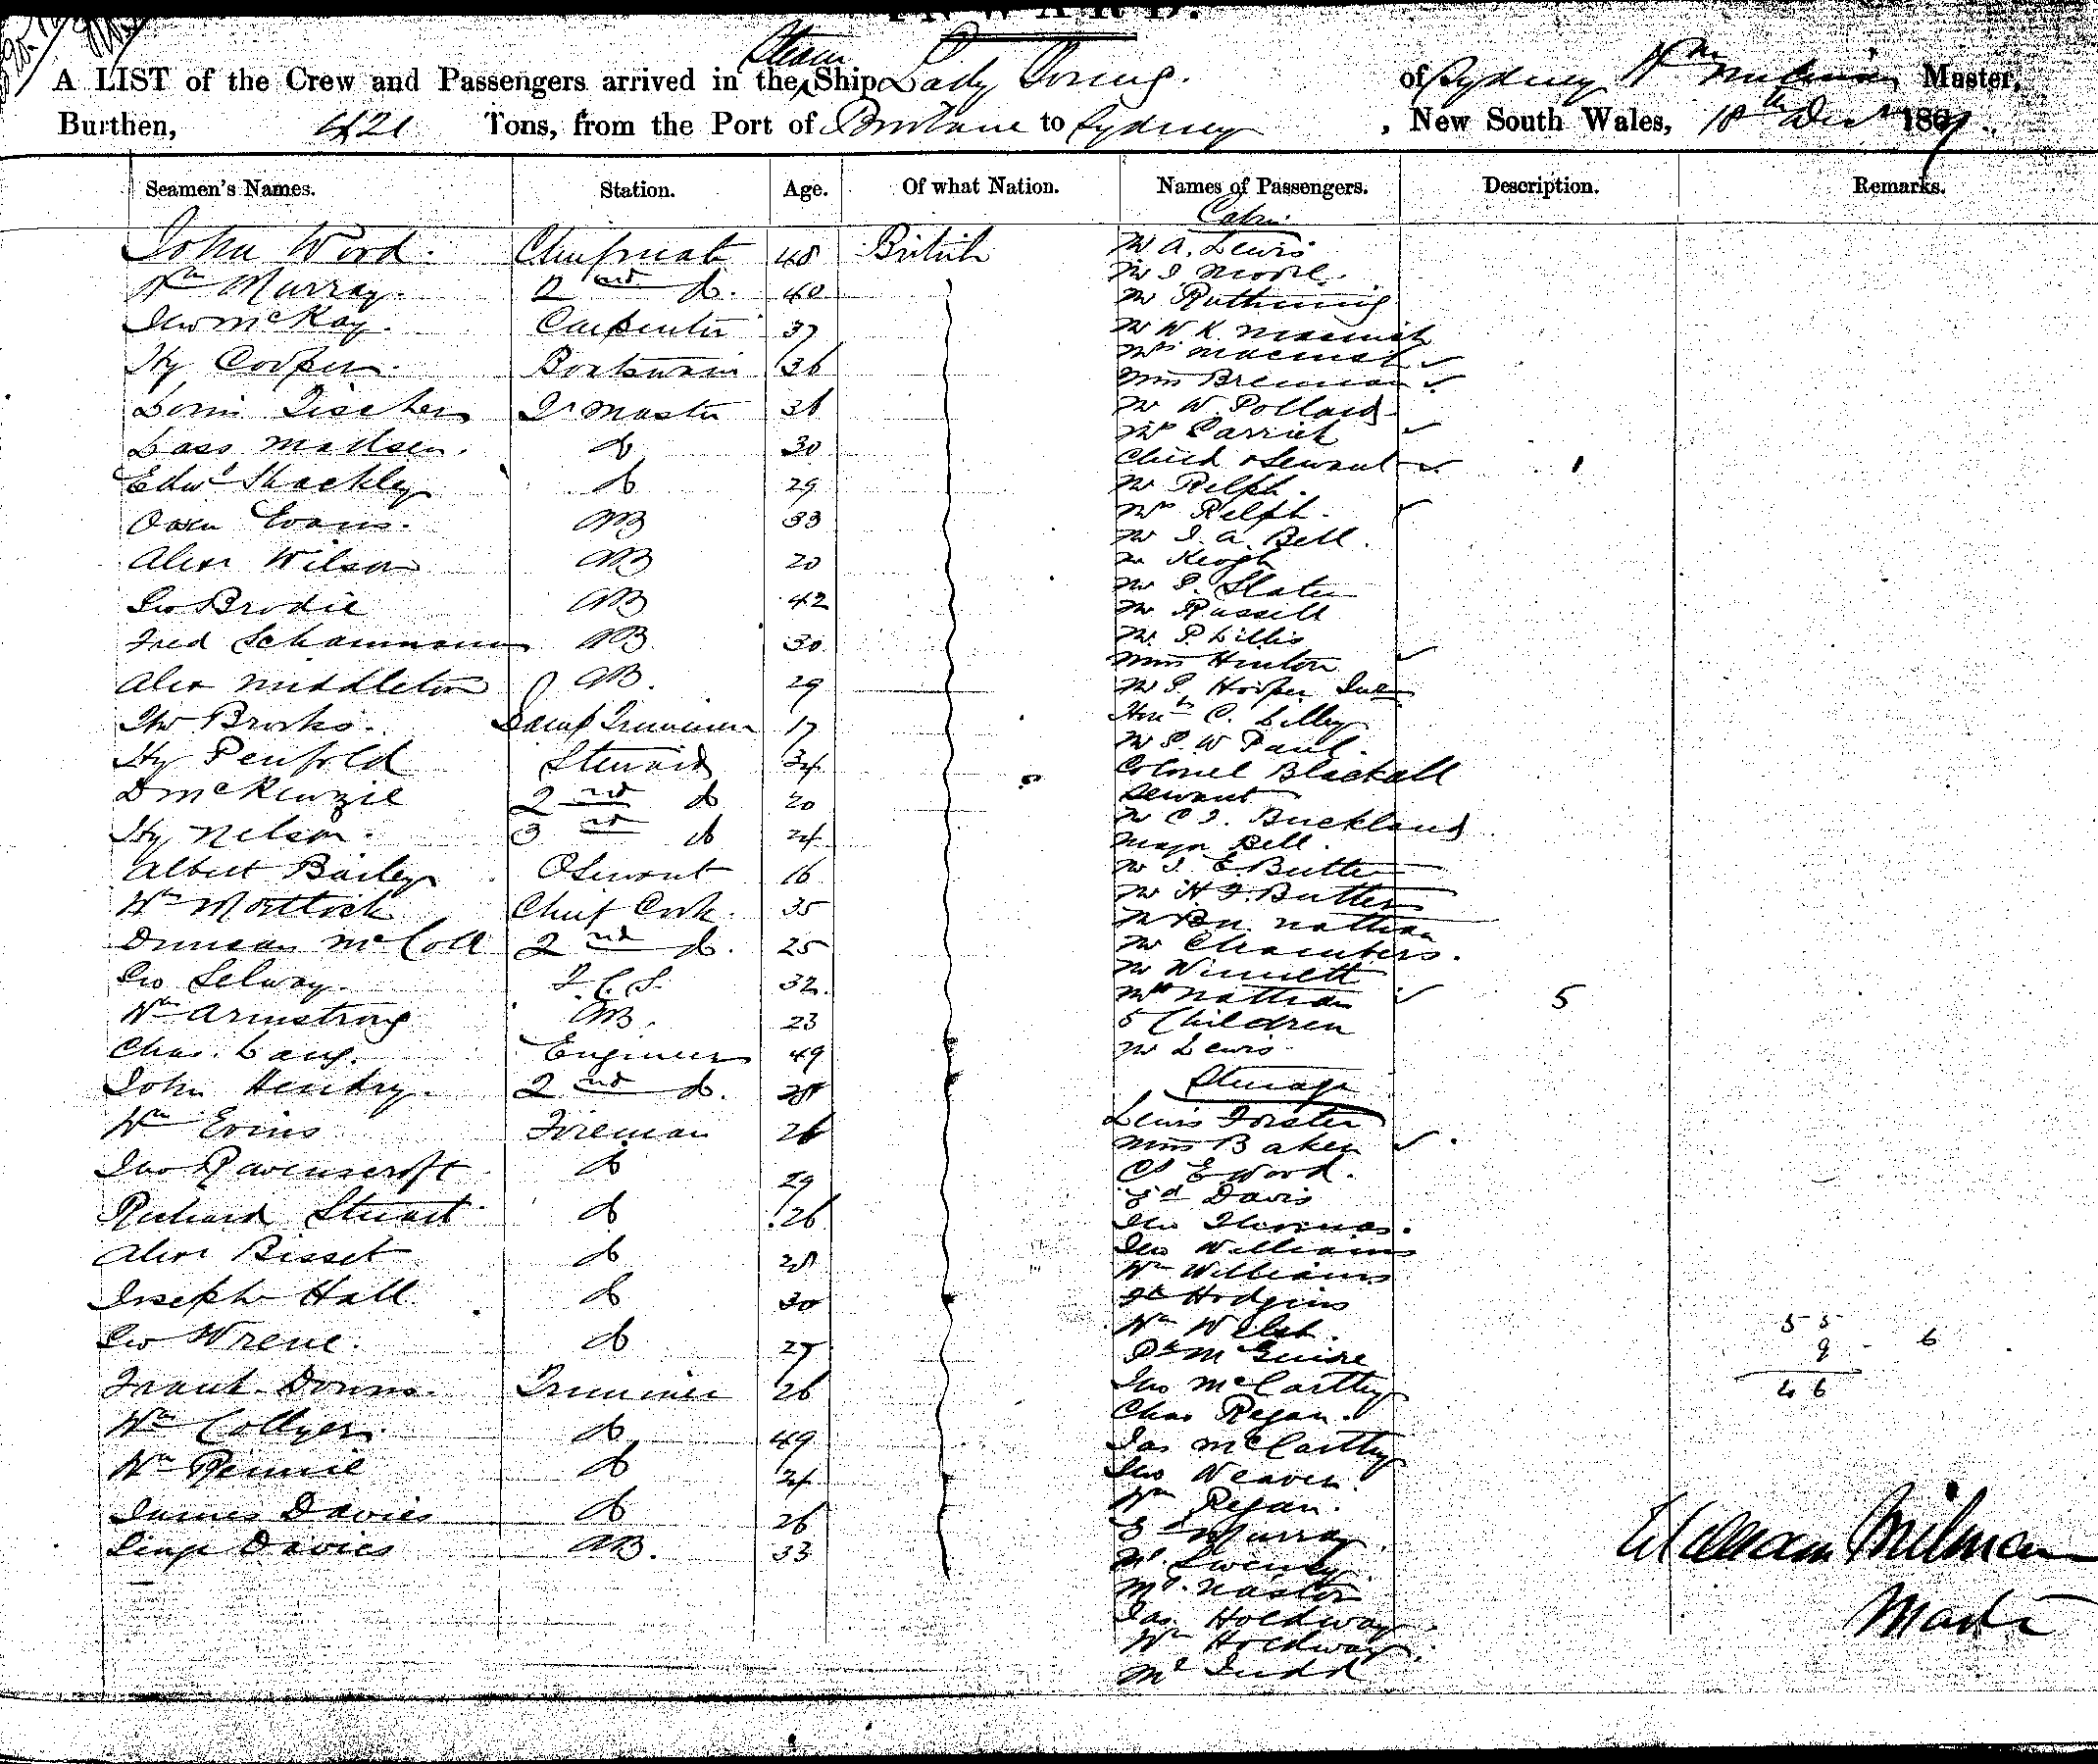 INWARD.
Steam
A LIST of the Crew and Passengers arrived in the Ship Lady Young. of Sydney Wm Milman, Master,
Burthen, 421 Tons, from the Port of Brisbane to Sydney, New South Wales, 18th Decr 186
Seamen's Names. Station. Age. Of what Nation. Names of Passengers. Description. Remarks.
John Wood. Chief mate 48 British
Wm Murray. 2nd do. 40
Jno McKay. Carpenter 37
Hy Cooper. Boatswain 36
Tischer Qr Master 36
Lass Madsen. do 30
Edwd Shackley do 29
Owen Evans. AB 33
Alexr Wilson AB 20
Geo Brodie AB 42
Fred Schammann AB 30
Alex Middleton AB. 29
Brooks. Lamp Trimmer 17
Hy Penfold Steward 34
D McKenzie 2nd do 20
Hy Nelson. 3rd do 24
Albert Bailey Servant 16
Wm Mortlock Chief Cook. 35
Duncan McColl 2nd do. 25
Geo Selway. 32.
Wm Armstrong AB. 23
Chas. Lang. Engineer 49
John Hendry. 2nd do.
Wm Evins Fireman 26
Jno Ravenscroft do 29
Richard Stuart do 26
Alexr Bisset do 28
Joseph Hall do 30
Geo Wrene. do 27
Frank Downs. Trimmer 26
Wm Collyer. do 49
Wm Rennie do 24
James Davies do 26
Davies AB. 33
Cabin
Mr A. Lewis
Mr J Moore.
Mr Ruthning
Mr W K. Macnish
Mrs Macnish
Miss Brennan
Mr W. Pollard
Mrs Carrick
Child & Servant 1
Mr Relph.
Mrs Relph.
Mr J. A. Bell.
Mr Keogh
Mr S. Slater
Mr Russell
Mr. P. Lillis
Miss Hinton
Mr P. Hooper Junr
Honble C. Lilley
Mr P. W Paul.
Colonel Blackall
Servant
Mr C J. Buckland
Major Bell.
Mr J. E. Butler
Mr H J. Butler
Nathan
Mr Chambers.
Mr Winnett
Mrs Nathan 5
5 Children
Mr Lewis
Steerage
Lewis Forster
Miss Baker
Cs E Wood.
Ed Davis
Jno Thomas.
Jno Williams
Wm Williams
Hodgins
Wm Welsh.
Pk McGuire
Jno McCarthy
Chas Regan.
Jas McCarthy
Jno Weaver
Wm Regan.
Ed Murray
Sweeney
Mr. Nastor
Jas Holdway
Wm Holdway
Mr Judd
55
9 - 6
46
William Milman
Master